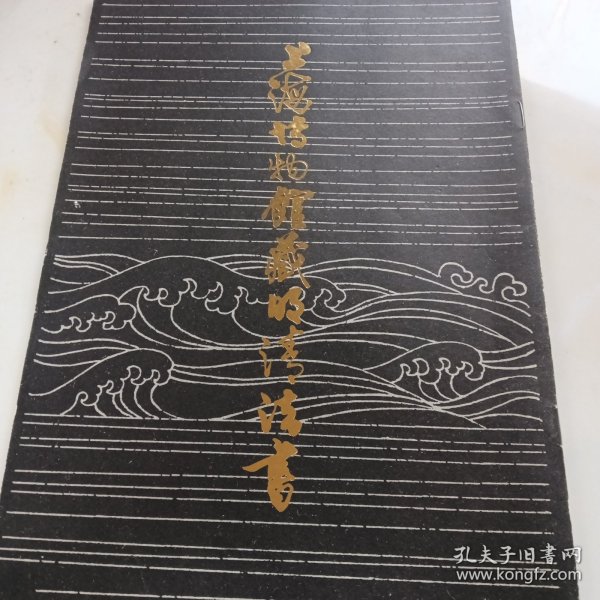 上海博物馆藏明清法书
孔夫子旧书网
www.kongfz.com